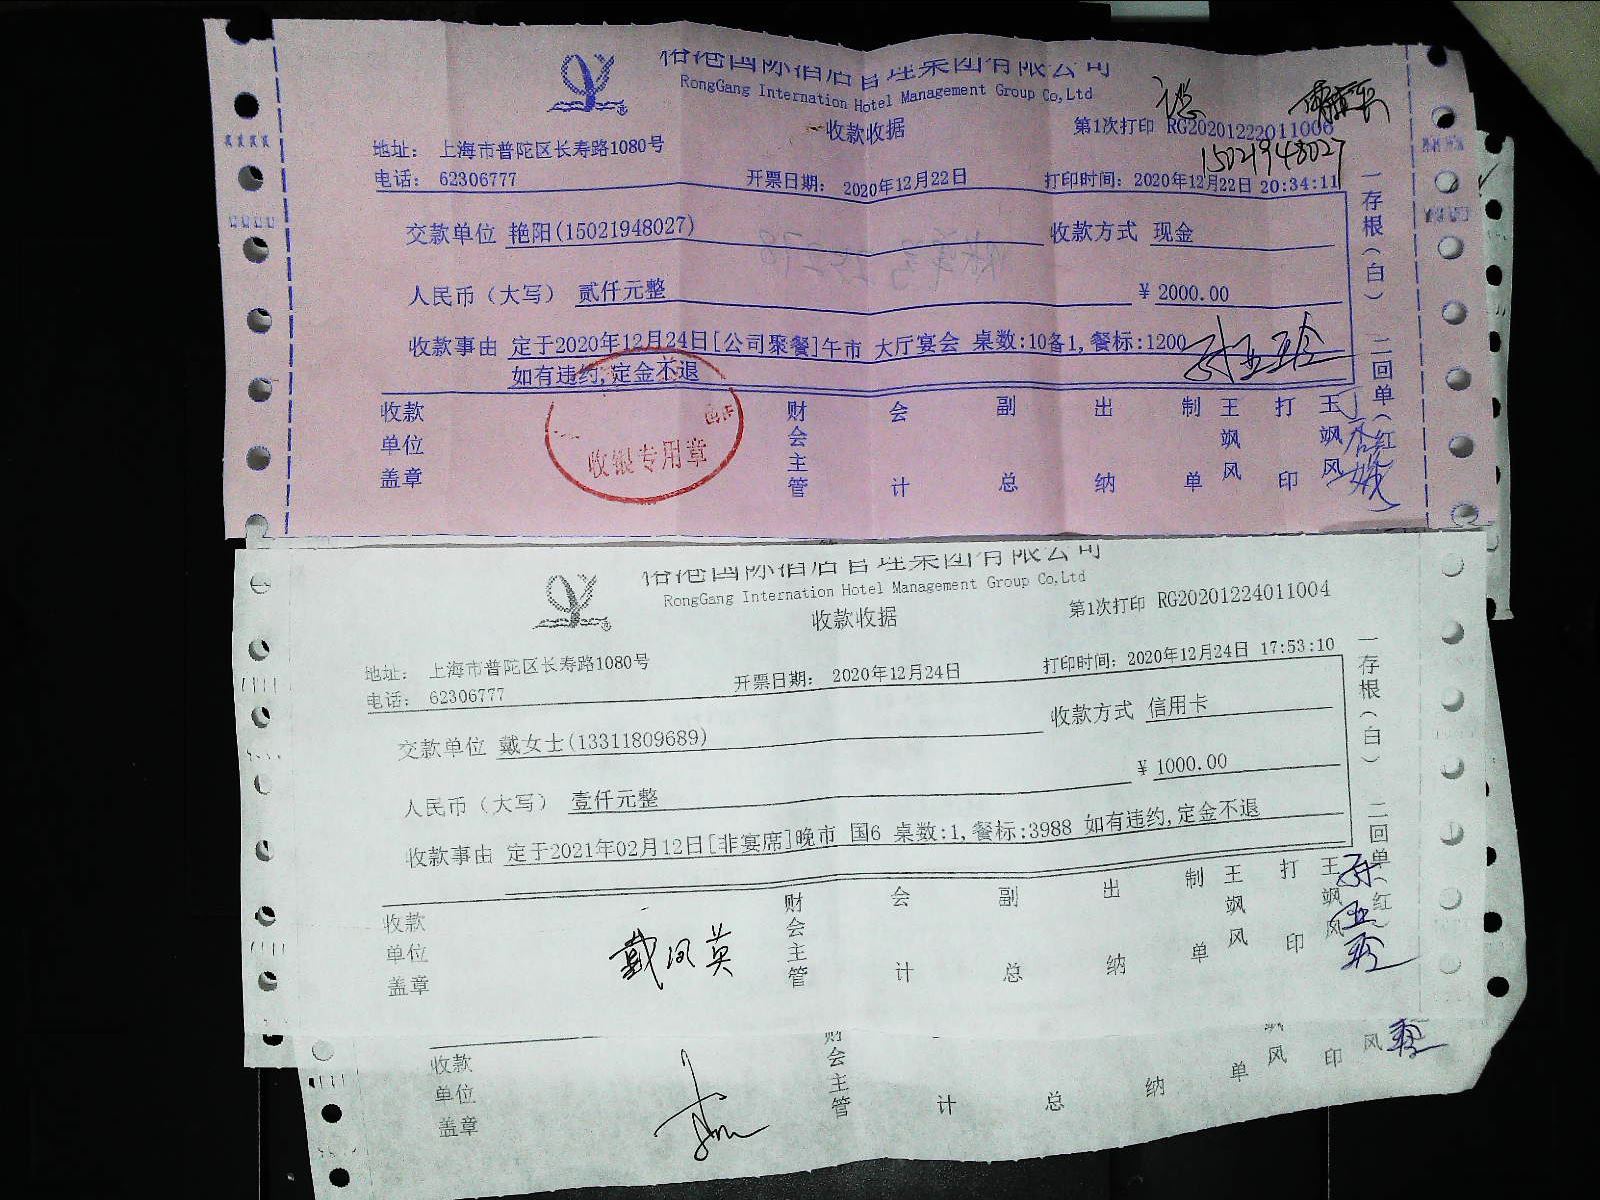 裕港国际酒店管理集团有限公司
RongGang International Hotel Management Group Co,Ltd
收款收据
第1次打印 RG20201222011006
15021948027
地址： 上海市普陀区长寿路1080号
电话： 62306777
开票日期： 2020年12月22日
打印时间：2020年12月22日 20:34:11
交款单位 艳阳(15021948027)
收款方式 现金
人民币（大写） 贰仟元整
¥ 2000.00
收款事由 定于2020年12月24日[公司聚餐]午市 大厅宴会 桌数:10备1,餐标:1200
如有违约,定金不退
收款单位盖章
收银专用章
财会主管
会计
副总
出纳
制单
王飒风
打印
王飒风
一存根（白） 二回单（红）
裕港国际酒店管理集团有限公司
RongGang International Hotel Management Group Co,Ltd
收款收据
第1次打印 RG20201224011004
地址： 上海市普陀区长寿路1080号
电话： 62306777
开票日期： 2020年12月24日
打印时间：2020年12月24日 17:53:10
交款单位 戴女士(13311809689)
收款方式 信用卡
人民币（大写） 壹仟元整
¥ 1000.00
收款事由 定于2021年02月12日[非宴席]晚市 国6 桌数:1,餐标:3988 如有违约,定金不退
收款单位盖章
戴凤英
财会主管
会计
副总
出纳
制单
王飒风
打印
王飒风
一存根（白） 二回单（红）
收款单位盖章
财会主管
计
总
纳
单
飒风
印
风